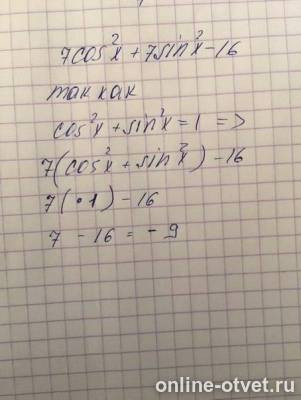 7cos²x + 7sin²x - 16
так как
cos²x + sin²x = 1 =>
7(cos²x + sin²x) - 16
7(·1) - 16
7 - 16 = - 9
online-otvet.ru